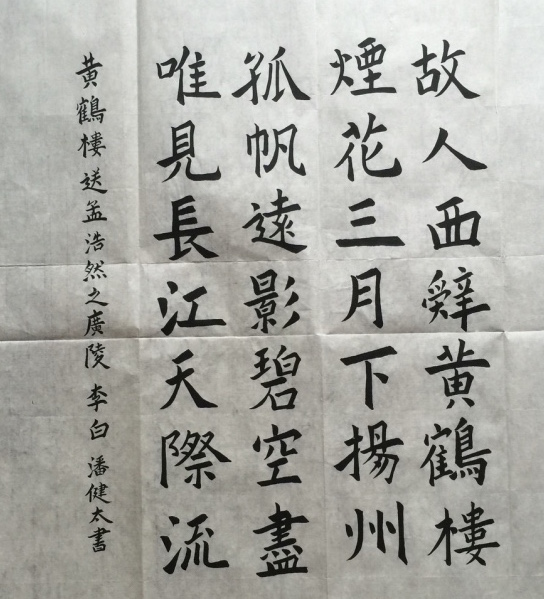 故人西辭黃鶴樓
煙花三月下揚州
孤帆遠影碧空盡
唯見長江天際流
黃鶴樓送孟浩然之廣陵 李白 潘健太書